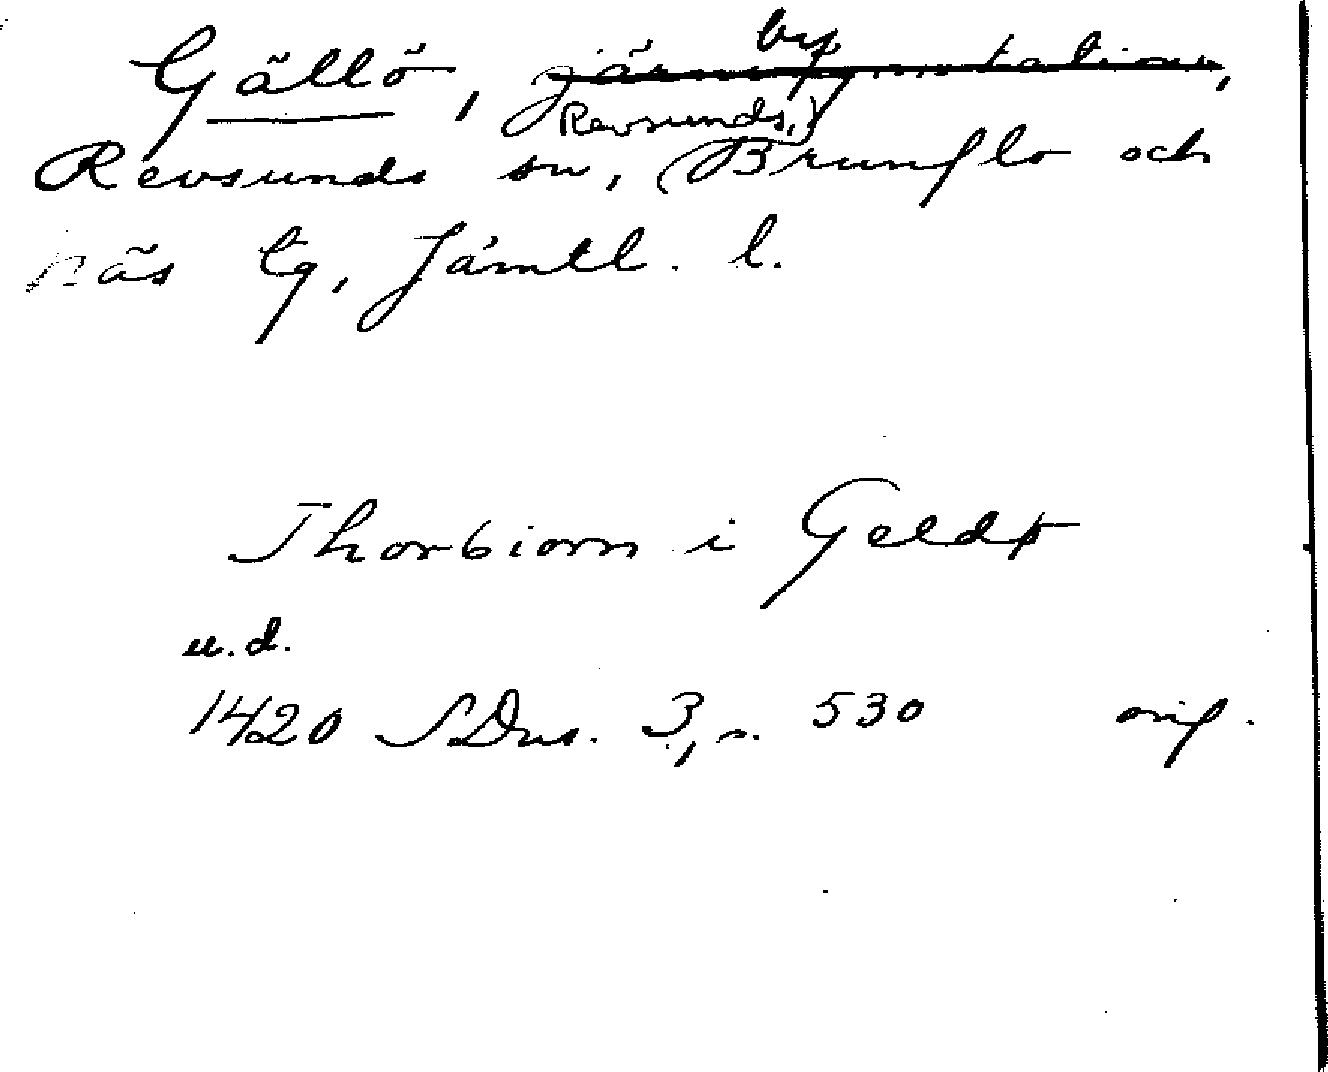 by
Gällö, järnvägsstation,
Revsunds,)
Revsunds sn, (Brunflo och
näs tg, Jämtl. l.
Thorbiorn i Geldø
u.d.
1420 SDns. 3, s. 530 orig.